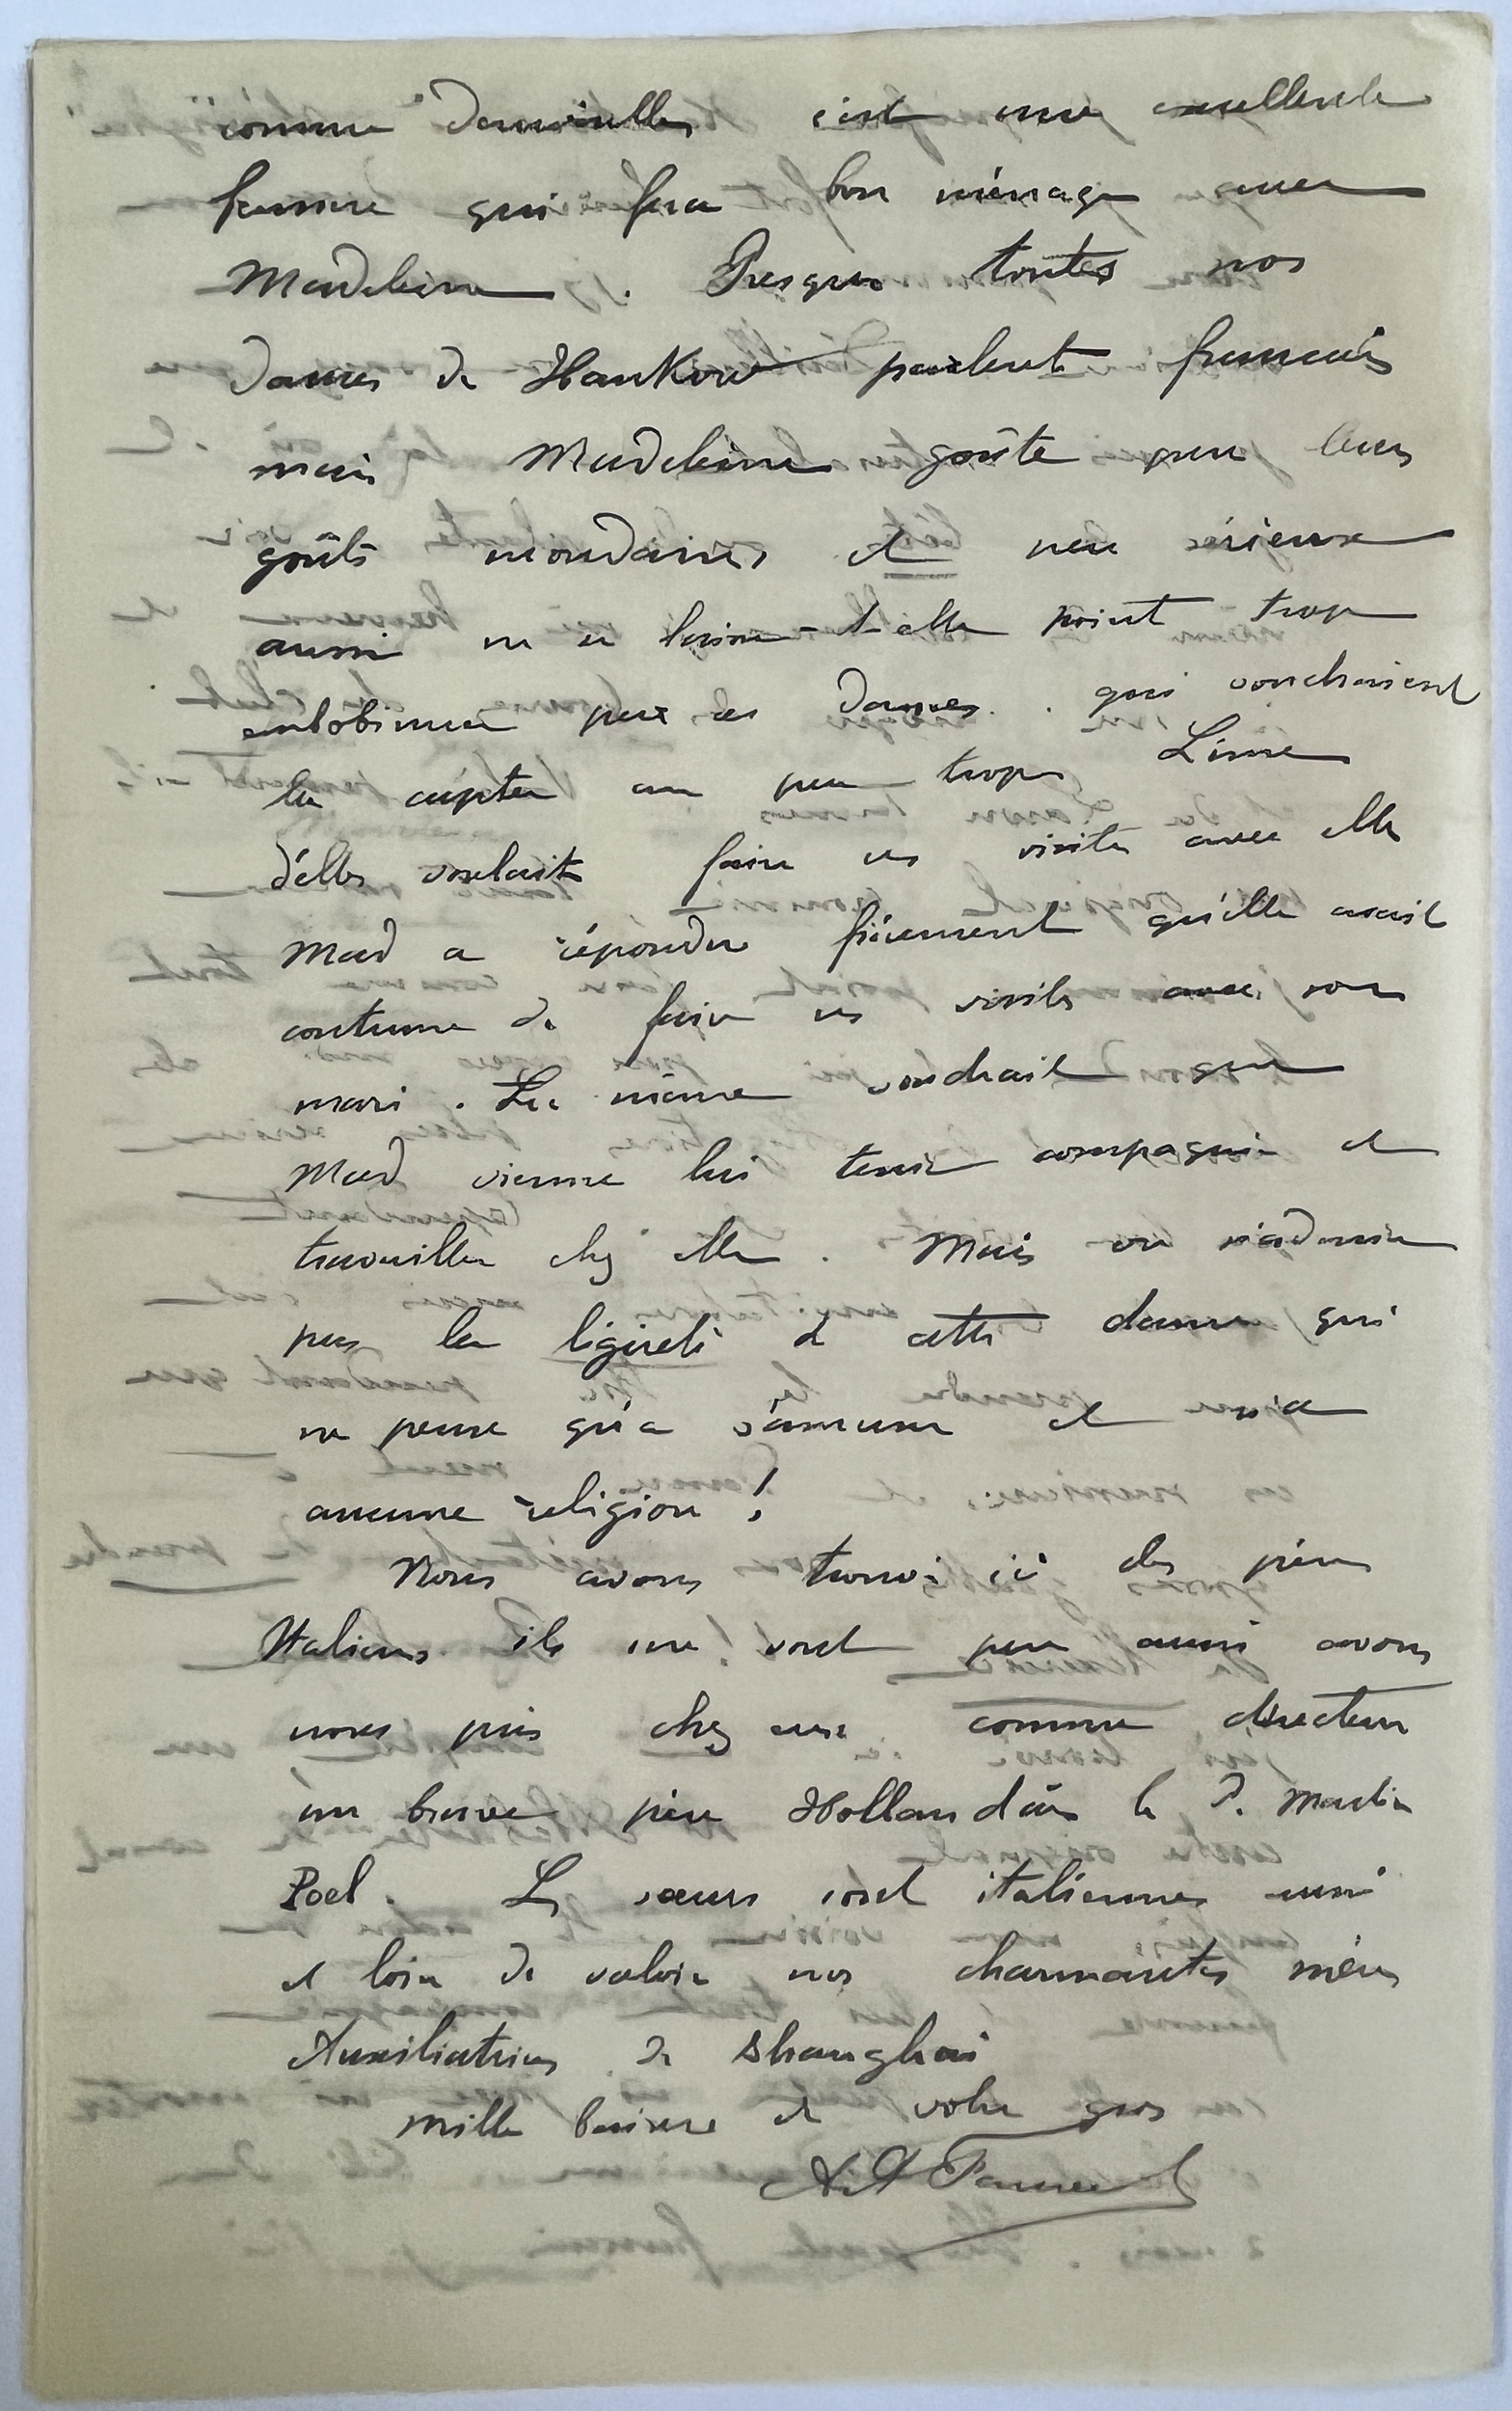 comme Demoiselle, c'est une excellente
femme qui fera bon ménage avec
Madeleine. Presque toutes nos
dames de Hankow parlent français
mais Madeleine goûte peu leurs
goûts mondains et peu sérieux
aussi ne se laisse-t-elle point trop
embobiner par ces dames. qui voudraient
la capter un peu trop L'une
d'elles voulait faire ses visites avec elle
Mad a répondu fièrement qu'elle avait
coutume de faire ses visites avec son
mari. La même voudrait que
Mad vienne lui tenir compagnie et
travailler chez elle. Mais on n'admire
pas la légèreté de cette dame qui
ne pense qu'à s'amuser et n'a
aucune religion !
Nous avons trouvé ici des pères
Italiens ils me vont peu aussi avons
nous pris chez eux comme directeur
un brave père Hollandais le P. Martin
Poel. Les sœurs sont italiennes aussi
et loin de valoir nos charmantes mères
Auxiliatrices de Shanghai
Mille baisers de votre gros